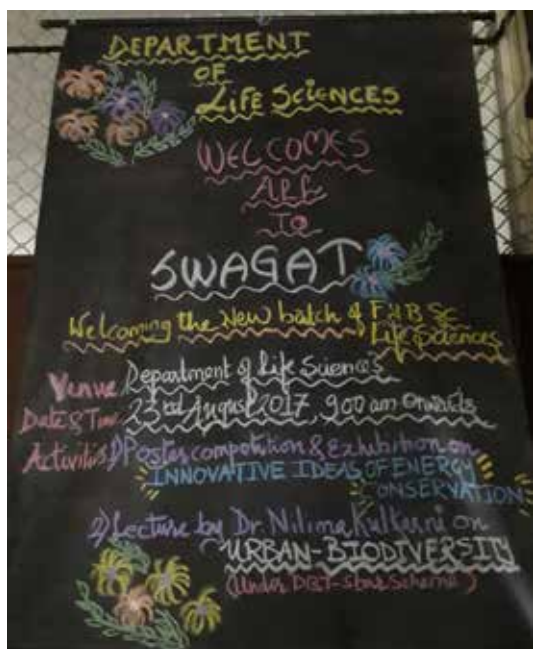 DEPARTMENT
OF
LIFE SCIENCES
WELCOMES
ALL
TO
SWAGAT
Welcoming the New batch of F.Y.B.Sc
Life Sciences
Venue Department of Life Sciences
Date & Time 23rd August 2017, 9.00 am Onwards
Activities 1) Poster competition & Exhibition on
INNOVATIVE IDEAS OF ENERGY
CONSERVATION
2) Lecture by Dr Nilima Kulkarni on
URBAN-BIODIVERSITY
(Under DBT-Star Scheme)